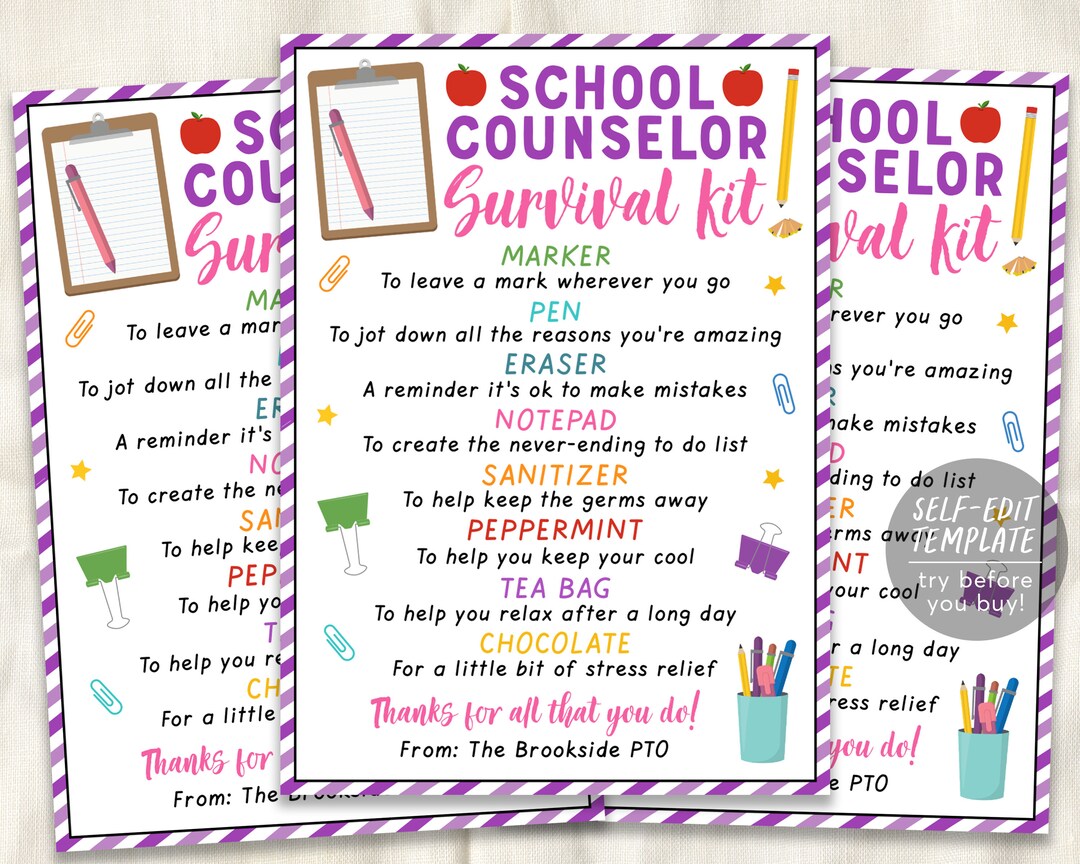 SCHOOL
COUNSELOR
Survival Kit
MARKER
To leave a mark wherever you go
PEN
To jot down all the reasons you're amazing
ERASER
A reminder it's ok to make mistakes
NOTEPAD
To create the never-ending to do list
SANITIZER
To help keep the germs away
PEPPERMINT
To help you keep your cool
TEA BAG
To help you relax after a long day
CHOCOLATE
For a little bit of stress relief
Thanks for all that you do!
From: The Brookside PTO
SC
COU
Sur
MA
To leave a mar
To jot down all the
ER
A reminder it's
NO
To create the ne
SAN
To help kee
PEP
To help yo
T
To help you re
CH
For a little
Thanks for
From: The Brooksid
HOOL
SELOR
val Kit
R
rever you go
s you're amazing
R
make mistakes
D
ding to do list
ER
erms away
NT
your cool
G
r a long day
TE
ress relief
you do!
e PTO
SELF-EDIT
TEMPLATE
try before
you buy!